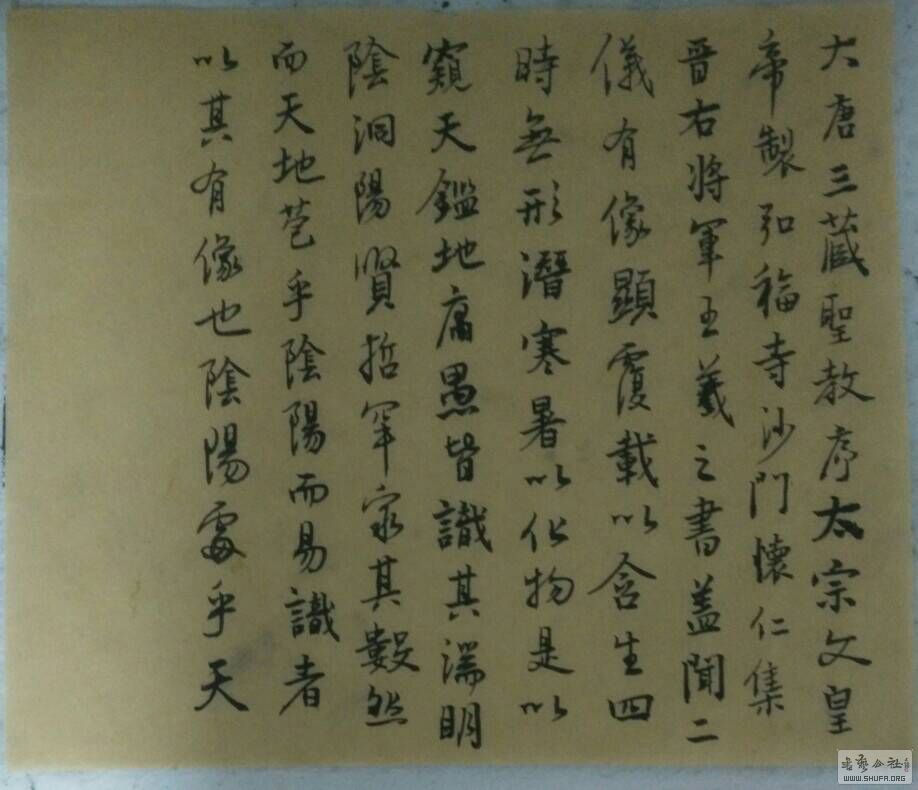 大唐三藏聖教序太宗文皇
帝製弘福寺沙門懷仁集
晋右將軍王羲之書盖聞二
儀有像顯覆載以含生四
時無形潛寒暑以化物是以
窺天鑑地庸愚皆識其端明
陰洞陽賢哲罕窮其數然
而天地苞乎陰陽而易識者
以其有像也陰陽處乎天
書藝公社
WWW.SHUFA.ORG